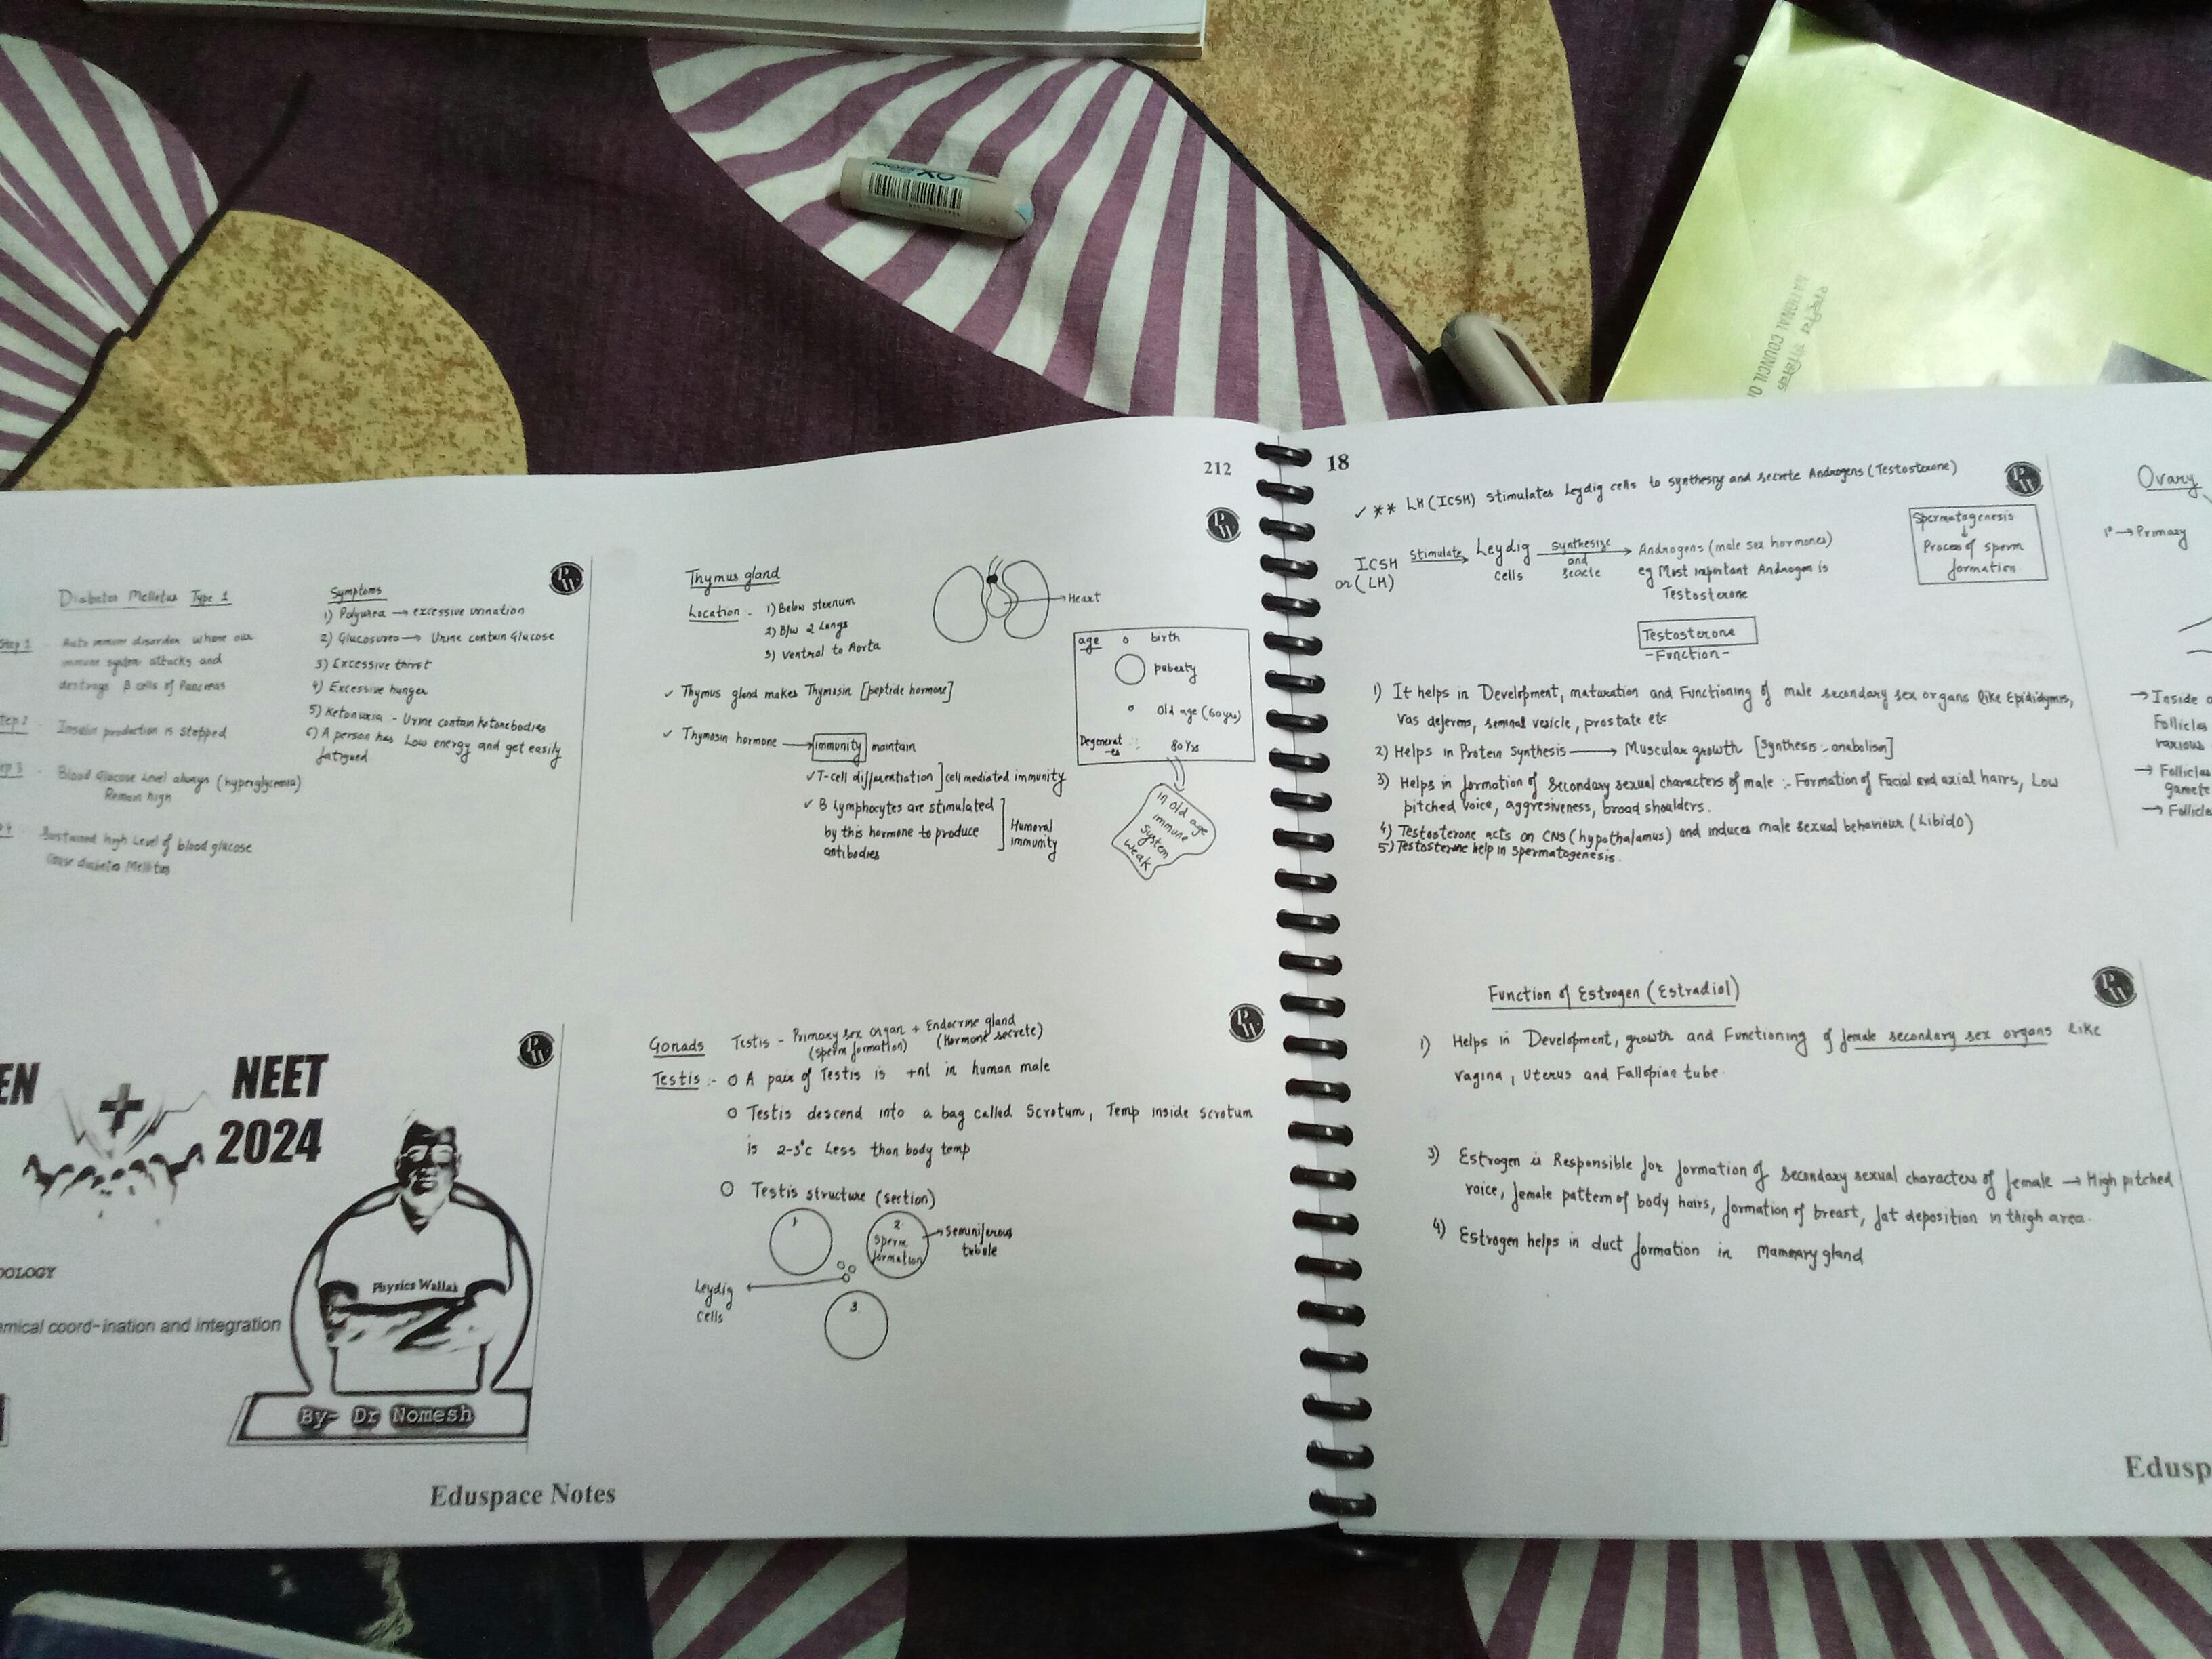 212
Diabetes Melletus Type 1
Auto immune disorder where our
immune system attacks and
destroys β cells of Pancreas
Insulin production is stopped
Blood Glucose Level always (hyperglycemia)
Remain high
Sustained high Level of blood glucose
cause diabetes Mellitus
Symptoms
1) Polyurea → excessive urination
2) Glucosurea → Urine contain Glucose
3) Excessive thirst
4) Excessive hunger
5) Ketonuria - Urine contain ketonebodies
6) A person has Low energy and get easily
fatigued
PW
Thymus gland
Location - 1) Below sternum
2) B/w 2 Lungs
3) Ventral to Aorta
Heart
✓ Thymus gland makes Thymosin [peptide hormone]
✓ Thymosin hormone → immunity maintain
✓ T-cell differentiation ] cell mediated immunity
✓ B Lymphocytes are stimulated
by this hormone to produce
antibodies
Humoral
immunity
age
birth
puberty
Old age (60 yrs)
Degenerat
-es
80 Yrs
In old age
immune
System
weak
PW
EN
NEET
2024
Physics Wallah
OOLOGY
emical coord-ination and integration
By- Dr Nomesh
PW
Gonads Testis - Primary sex organ + Endocrine gland
(sperm formation) (Hormone secrete)
Testis :- O A pair of Testis is +nt in human male
O Testis descend into a bag called Scrotum, Temp inside scrotum
is 2-3°c Less than body temp
O Testis structure (section)
1
2
sperm
formation
→ Seminiferous
tubule
Leydig
cells
3
PW
Eduspace Notes
18
✓ ** LH (ICSH) stimulates Leydig cells to synthesize and secrete Androgens (Testosterone)
ICSH
or (LH)
Stimulate
Leydig
cells
Synthesize
and
secrete
Androgens (male sex hormones)
eg Most important Androgen is
Testosterone
Spermatogenesis
↓
Process of sperm
formation
PW
Testosterone
-Function-
1) It helps in Development, maturation and Functioning of male secondary sex organs like Epididymis,
Vas deferens, seminal vesicle, prostate etc
2) Helps in Protein Synthesis → Muscular growth [Synthesis :- anabolism]
3) Helps in formation of Secondary sexual characters of male :- Formation of Facial and axial hairs, Low
pitched voice, aggresiveness, broad shoulders.
4) Testosterone acts on CNS (hypothalamus) and induces male sexual behaviour (Libido)
5) Testosterone help in spermatogenesis.
Function of Estrogen (Estradiol)
1) Helps in Development, growth and Functioning of female secondary sex organs like
vagina, Uterus and Fallopian tube.
3) Estrogen is Responsible for formation of secondary sexual characters of female → High pitched
voice, female pattern of body hairs, formation of breast, fat deposition in thigh area.
4) Estrogen helps in duct formation in Mammary gland
PW
Ovary
1° → Primary
→ Inside
Follicles
various
→ Follicles
gamete
→ Follicle
Edusp
NATIONAL COUNCIL O
OXO